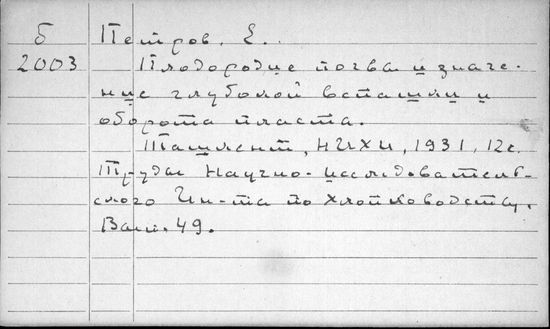 б Петров, Е.
2003 Плодородие почвы и значе-
ние глубокой вспашки и
оборота пласта.
Ташкент, НИХИ, 1931, 12с.
Труды Научно-исследователь-
ского Ин-та по хлопководству,
Вып. 49.